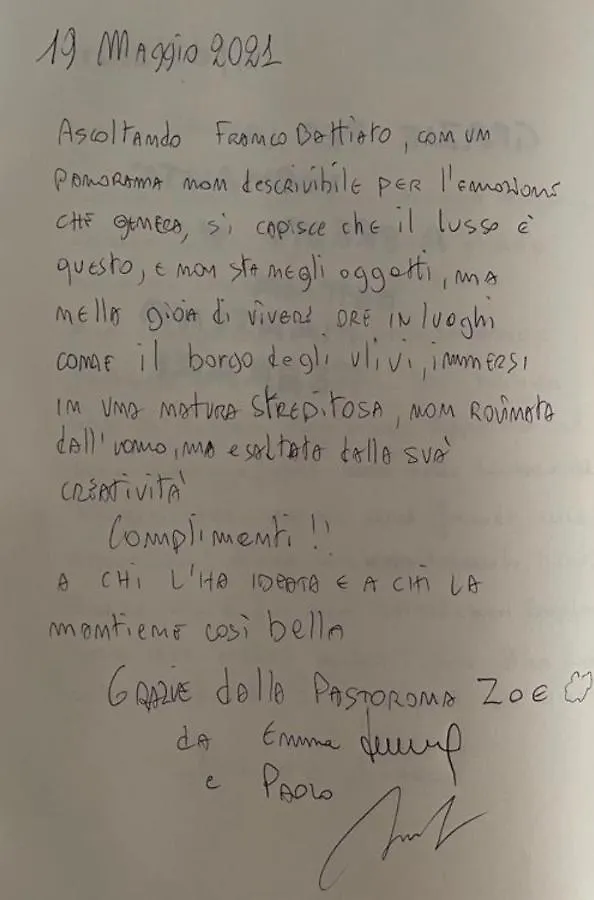 19 Maggio 2021
Ascoltando Franco Battiato, con un
panorama non descrivibile per l'emozione
che genera, si capisce che il lusso è
questo, e non sta negli oggetti, ma
nella gioia di vivere ore in luoghi
come il borgo degli ulivi, immersi
in una natura strepitosa, non rovinata
dall'uomo, ma esaltata dalla sua
creatività
Complimenti!!
a chi l'ha ideata e a chi la
mantiene così bella
Grazie dalla Pastoroma Zoe
da Emma
e Paolo